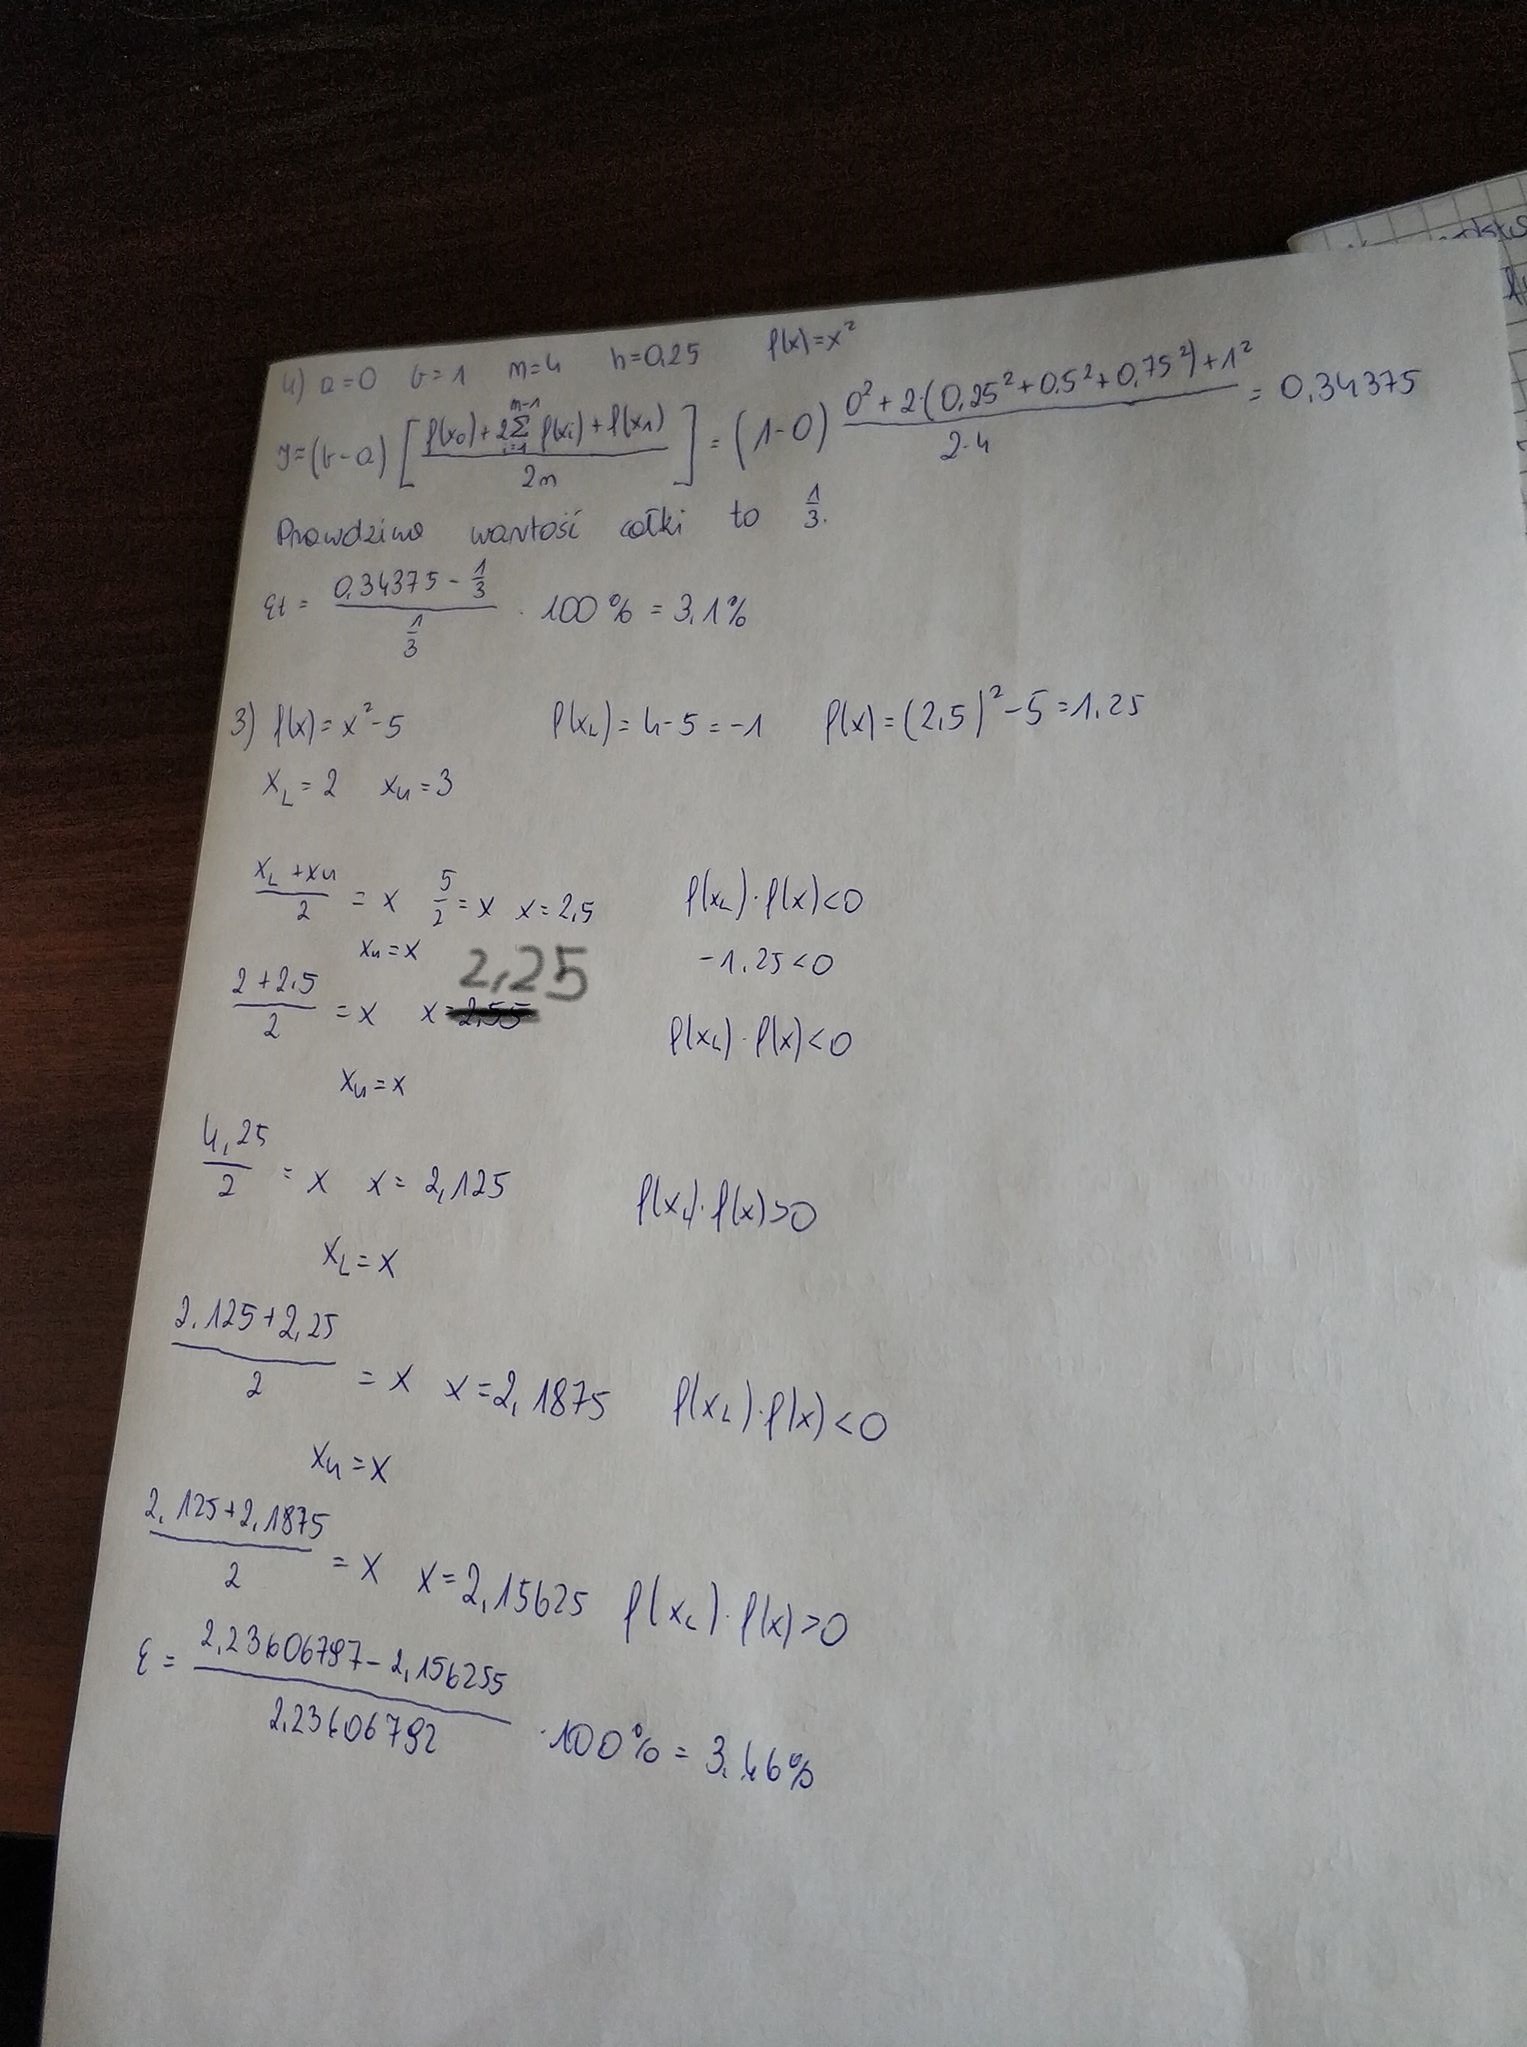 4) a=0 b=1 n=4 h=0,25 f(x)=x²
J=(b-a) [ (f(x₀)+2 Σ_{i=1}^{n-1} f(xᵢ)+f(x₁)) / 2n ] = (1-0) (0²+2·(0,25²+0,5²+0,75²)+1²) / (2·4) = 0,34375
Prawdziwa wartość całki to 1/3.
εt = (0,34375 - 1/3) / (1/3) · 100% = 3,1%
3) f(x)=x²-5 f(x_L)=4-5=-1 f(x)=(2,5)²-5=1,25
x_L=2 x_u=3
(x_L+x_u)/2 = x 5/2=x x=2,5 f(x_L)·f(x)<0
x_u=x -1.25<0
(2+2,5)/2 = x x= 2,25 f(x_L)·f(x)<0
x_u=x
4,25/2 = x x=2,125 f(x_L)·f(x)>0
x_L=x
(2,125+2,25)/2 = x x=2,1875 f(x_L)·f(x)<0
x_u=x
(2,125+2,1875)/2 = x x=2,15625 f(x_L)·f(x)>0
ε = (2,23606797-2,156255) / 2,23606792 · 100% = 3,46%